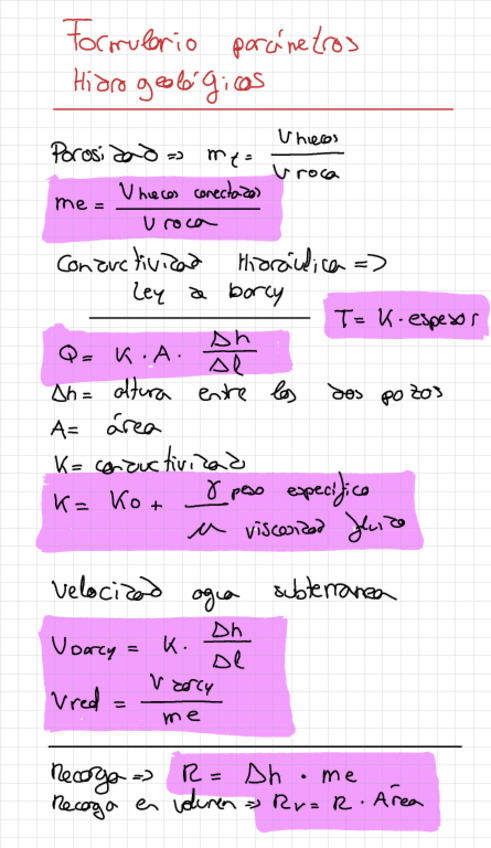 Formulario parámetros
Hidrogeológicos
Porosidad => mt = V huecos / V roca
me = V huecos conectados / V roca
Conductividad Hidráulica =>
Ley de Darcy
T = K · espesor
Q = K · A · Δh / Δl
Δh = altura entre los dos pozos
A = área
K = conductividad
K = Ko + γ peso específico / μ viscosidad fluido
Velocidad agua subterranea
V Darcy = K · Δh / Δl
V red = V darcy / me
Recarga => R = Δh · me
Recarga en volumen => Rv = R · Área